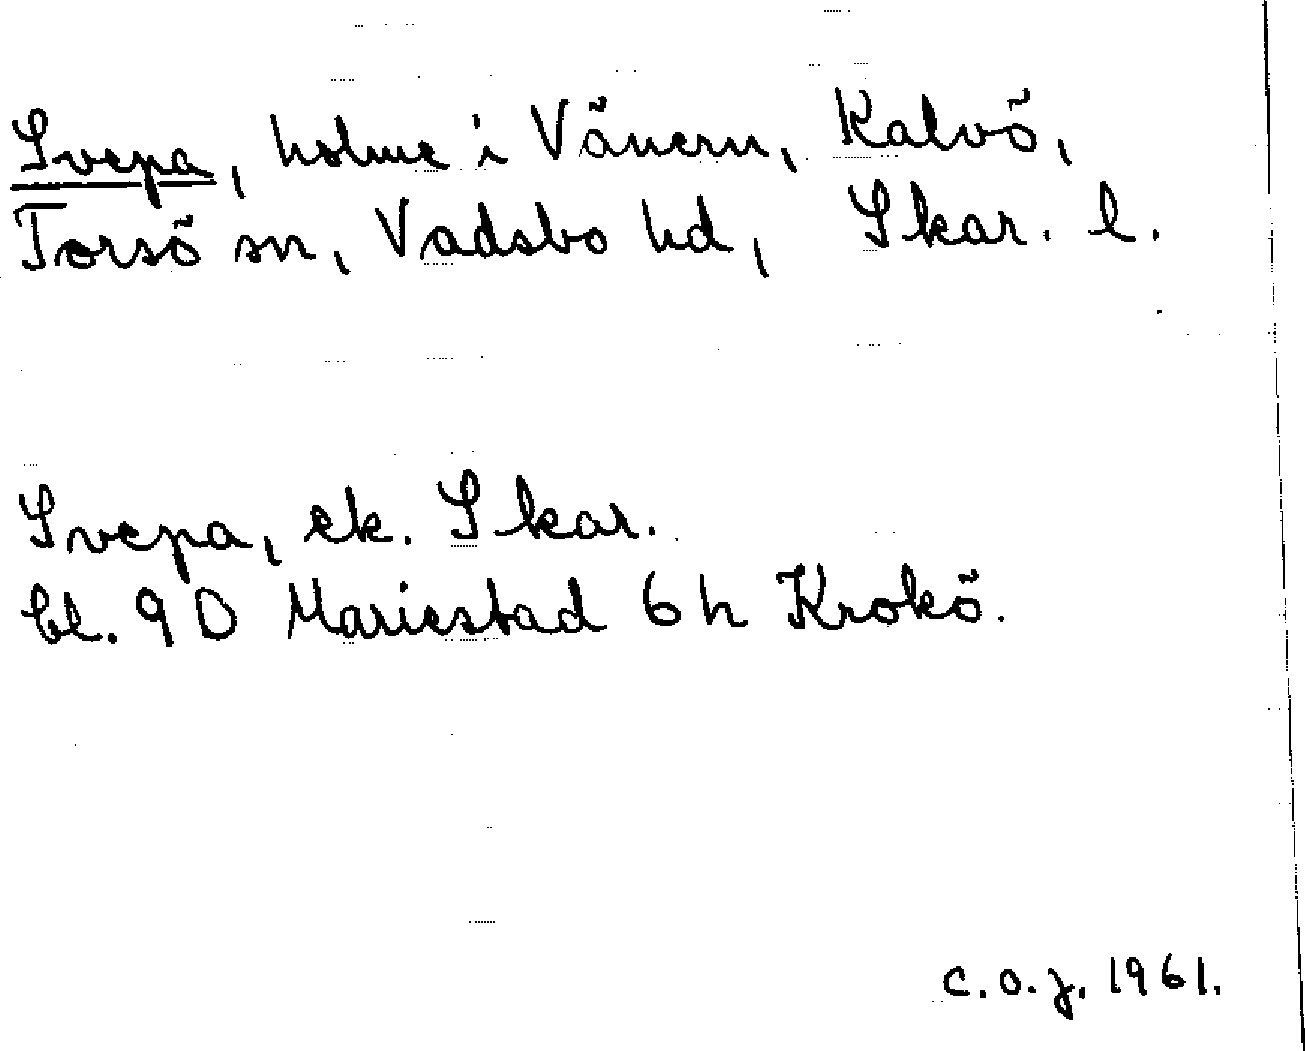 Svepa, holme i Vänern, Kalvö,
Torsö sn, Vadsbo hd, Skar. l.
Svepa, ek. Skar.
bl. 9D Mariestad 6h Krokö.
C.O.J. 1961.